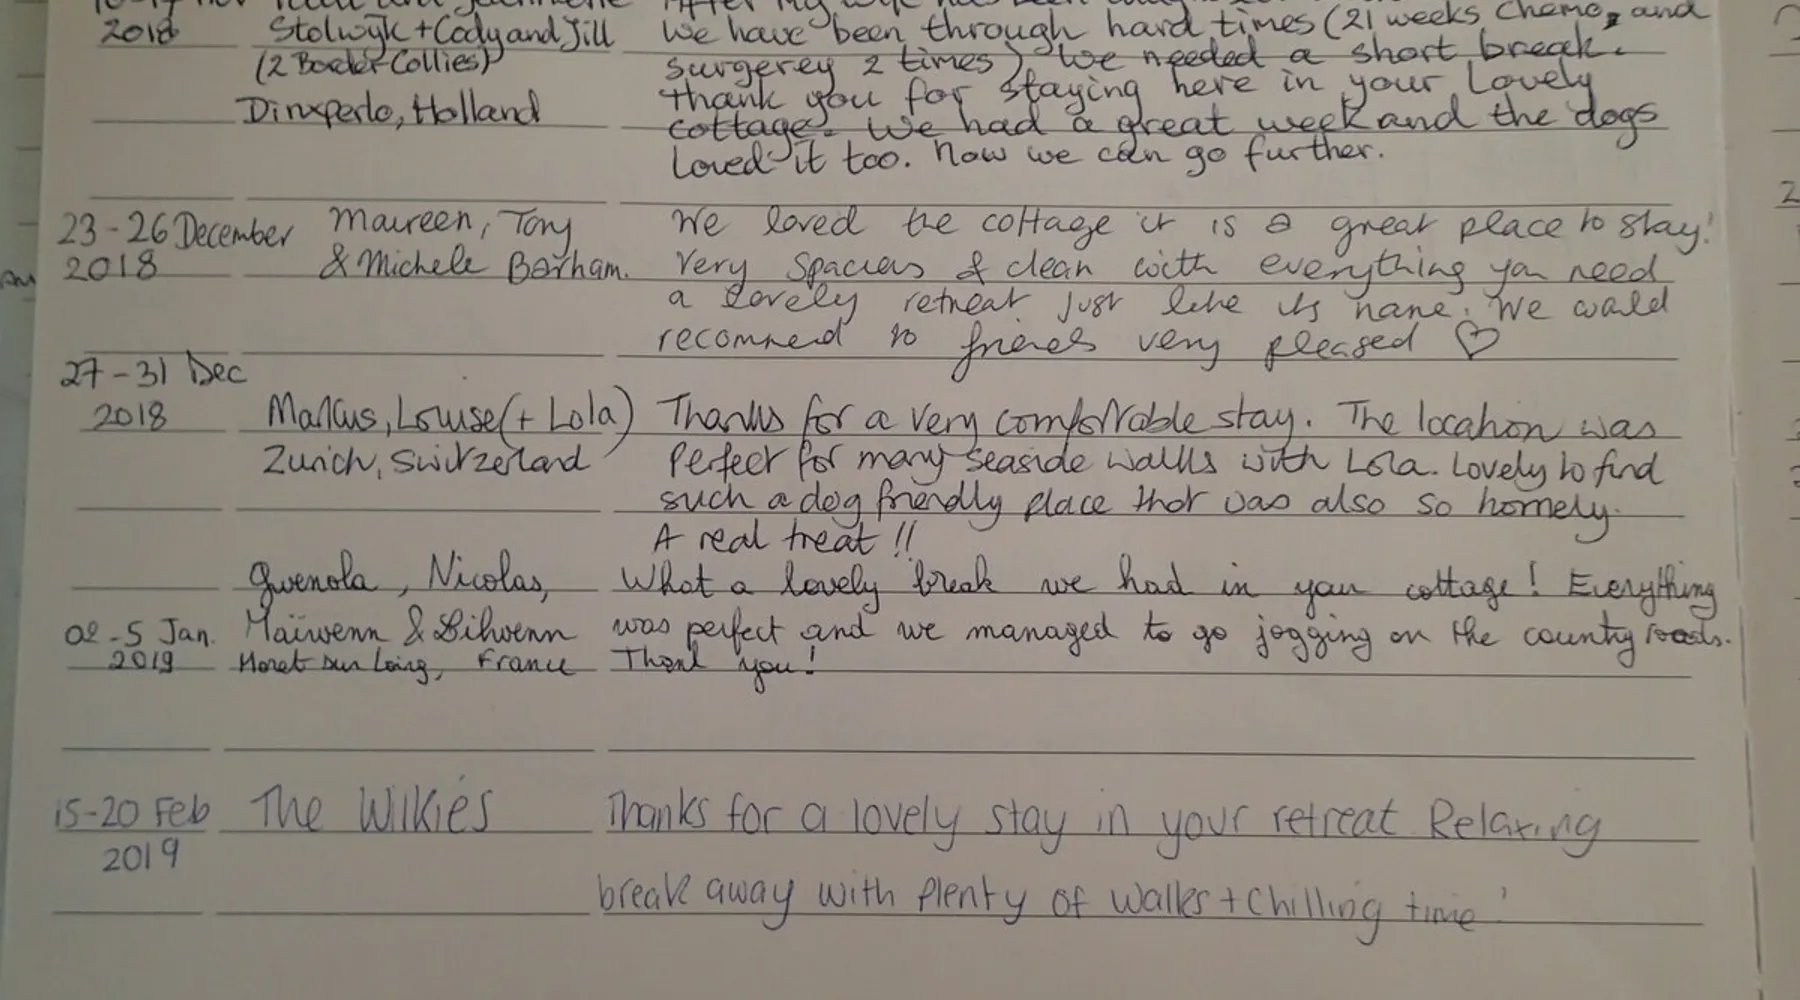 2018 Stolwijk + Cody and Jill We have been through hard times (21 weeks chemo, and
(2 Border Collies) surgerey 2 times). We needed a short break.
thank you for staying here in your Lovely
Dinxperlo, Holland cottage. We had a great week and the dogs
Loved it too. Now we can go further.
23-26 December Maureen, Tony We loved the cottage it is a great place to stay!
2018 & Michele Barham. Very spacious & clean with everything you need
a lovely retreat just like its name. We would
recommend to friends very pleased ♡
27-31 Dec
2018 Markus, Louise (+ Lola) Thanks for a very comfortable stay. The location was
Zurich, Switzerland Perfect for many seaside walks with Lola. Lovely to find
such a dog friendly place that was also so homely.
A real treat !!
Gwenola, Nicolas, What a lovely break we had in your cottage! Everything
02-5 Jan. Maïwenn & Lihwenn was perfect and we managed to go jogging on the country roads.
2019 Moret sur Loing, France Thank you!
15-20 Feb The Wilkies Thanks for a lovely stay in your retreat Relaxing
2019
break away with plenty of walks + chilling time!